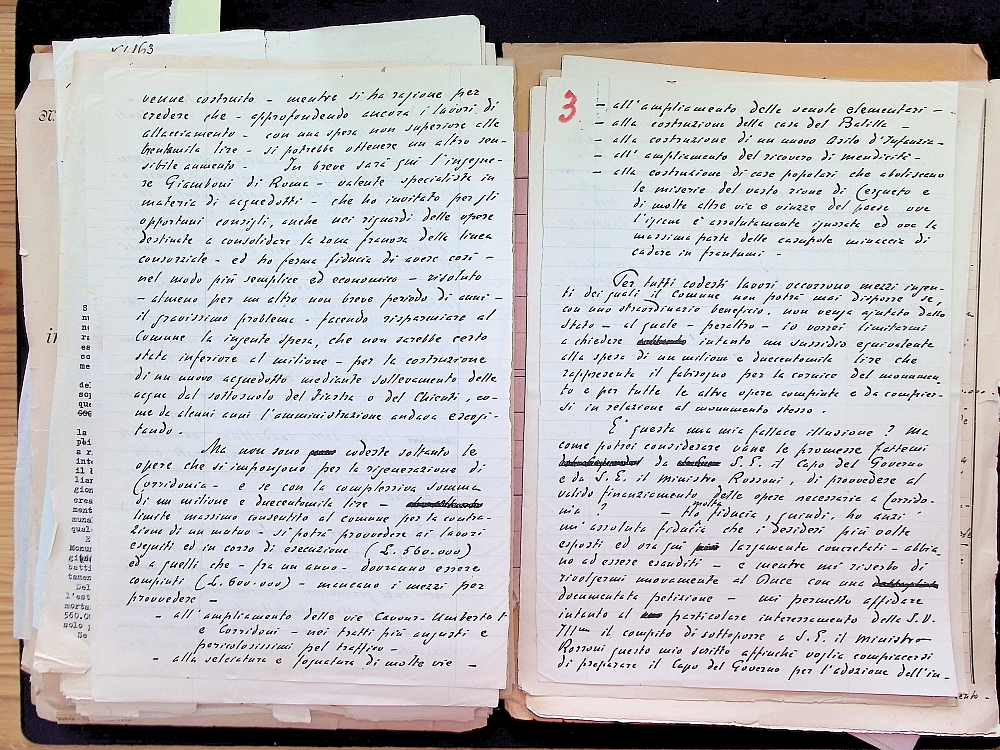 venne costruito - mentre si ha ragione per
credere che - approfondendo ancora i lavori di
allacciamento - con una spesa non superiore alle
trentamila lire - si potrebbe ottenere un altro sen-
sibile aumento - In breve sarà qui l'ingegne-
re Giamboni di Roma - valente specialista in
materia di acquedotti - che ho invitato per gli
opportuni consigli, anche nei riguardi delle opere
destinate a consolidare la zona franosa della linea
consorziale - ed ho ferma fiducia di avere così -
nel modo più semplice ed economico - risoluto
- almeno per un altro non breve periodo di anni -
il gravissimo problema - facendo risparmiare al
Comune la ingente spesa, che non sarebbe certo
stata inferiore al milione - per la costruzione
di un nuovo acquedotto mediante sollevamento delle
acque dal sottosuolo del Fiastra o del Chienti, co-
me da alcuni anni l'amministrazione andava escogi-
tando.
Ma non sono codeste soltanto le
opere che si impongono per la rigenerazione di
Corridonia - e se con la complessiva somma
di un milione e duecentomila lire -
limite massimo consentito al comune per la contra-
zione di un mutuo - si potrà provvedere ai lavori
eseguiti ed in corso di esecuzione (L. 560.000)
ed a quelli che - fra un anno - dovranno essere
compiuti (L. 600.000) - mancano i mezzi per
provvedere -
- all'ampliamento delle vie Cavour - Umberto I
e Corridoni - nei tratti più angusti e
pericolosissimi pel traffico -
- alla selciatura e fognatura di molte vie -
3
- all'ampliamento delle scuole elementari -
- alla costruzione della casa del Balilla -
- alla costruzione di un nuovo Asilo d'Infanzia -
- all'ampliamento del ricovero di mendicità -
- alla costruzione di case popolari che aboliscano
le miserie del vasto rione di Cerqueto e
di molte altre vie e viuzze del paese ove
l'igiene è assolutamente ignorata ed ove la
massima parte delle casupole minaccia di
cadere in frantumi -
Per tutti codesti lavori occorrono mezzi ingen-
ti dei quali il Comune non potrà mai disporre se,
con uno straordinario beneficio, non venga aiutato dallo
Stato - al quale - peraltro - io vorrei limitarmi
a chiedere intanto un sussidio equivalente
alla spesa di un milione e duecentomila lire che
rappresenta il fabisogno per la cornice del monumen-
to e per tutte le altre opere compiute e da compier-
si in relazione al monumento stesso.
E' questa una mia fallace illusione? Ma
come potrei considerare vane le promesse fattemi
da S.E. il Capo del Governo
e da S.E. il Ministro Rossoni, di provvedere al
valido finanziamento delle opere necessarie a Corrido-
nia? - Ho molta fiducia, quindi, ho anzi
un'assoluta fiducia che i desideri più volte
esposti ed ora qui largamente concretati - abbia-
no ad essere esauditi - e mentre mi riserbo di
rivolgermi nuovamente al Duce con una
documentata petizione - mi permetto affidare
intanto al particolare interessamento della S.V.
Ill.ma il compito di sottoporre a S.E. il Ministro
Rossoni questo mio scritto affinchè voglia compiacersi
di preparare il Capo del Governo per l'adozione dell'in-